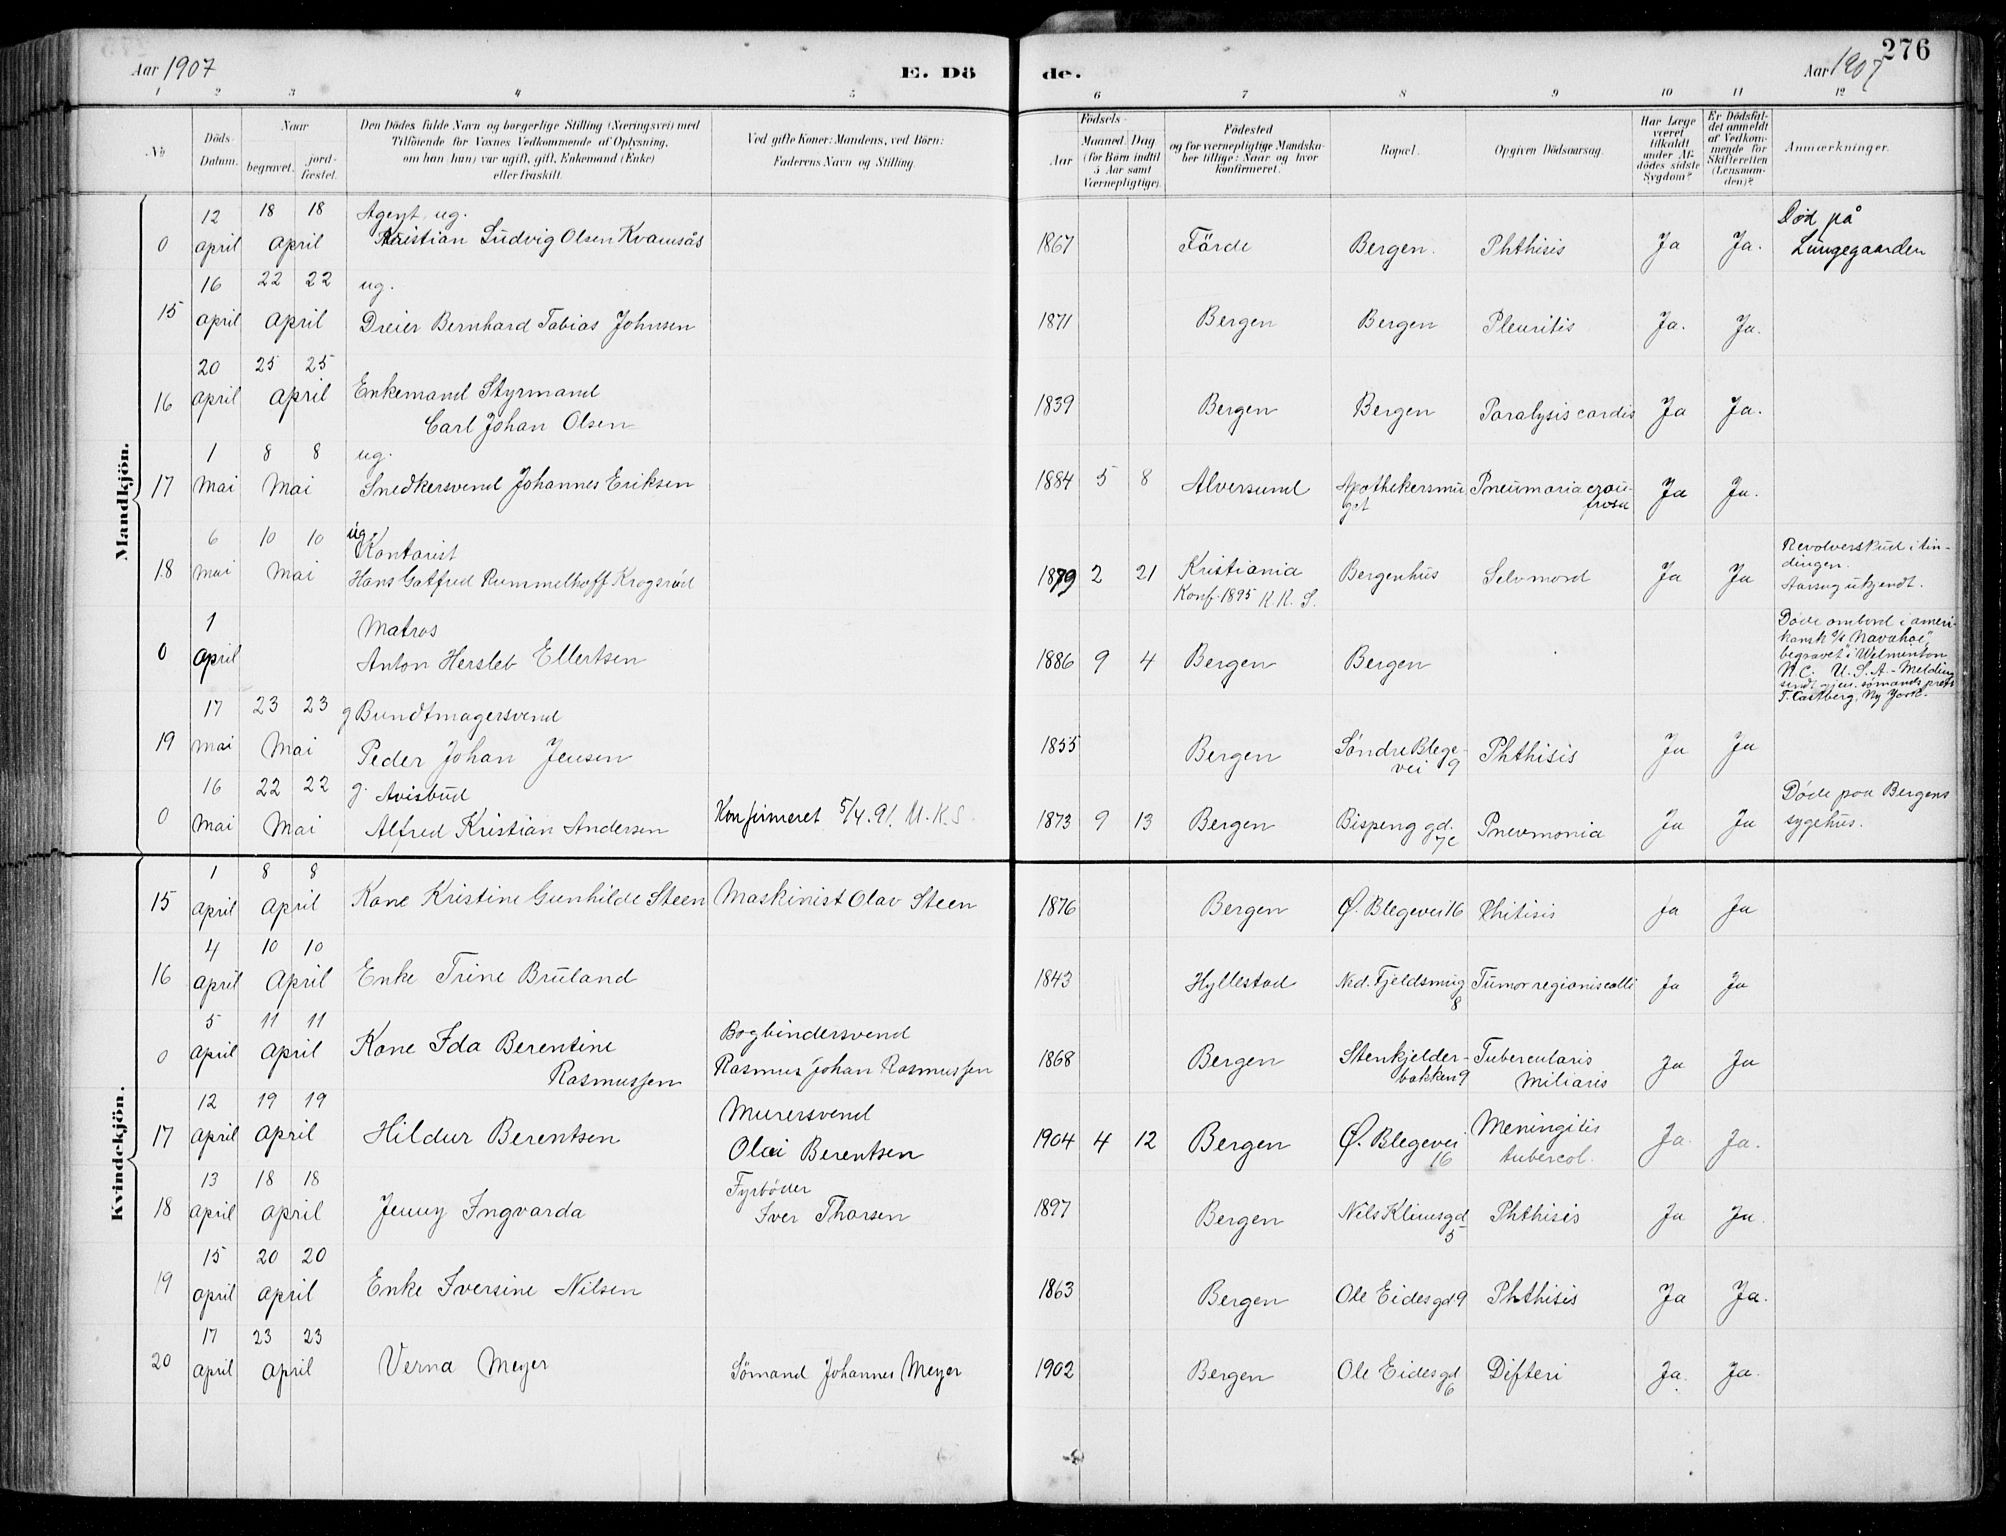 Aar 1907
E. Dö
de.
Aar 1907
276
1 2 3 4 5 6 7 8 9 10 11 12
No
Döds-Datum.
Naar
begravet.
jord-fæstet.
Den Dödes fulde Navn og borgerlige Stilling (Næringsvei) med
Tilföiende for Voxnes Vedkommende af Oplysning,
om han (hun) var ugift, gift, Enkemand (Enke)
eller fraskilt.
Ved gifte Koner: Mandens, ved Börn:
Faderens Navn og Stilling.
Födsels-
Aar
Maaned Dag
(for Börn indtil
5 Aar samt
Værnepligtige).
Födested
og for værnepligtige Mandska-
ber tillige: Naar og hvor
konfirmeret.
Bopæl.
Opgiven Dödsaarsag.
Har Læge
været
tilkaldt
under Af-
dödes sidste
Sygdom?
Er Dödsfal-
det anmeldt
af Vedkom-
mende for
Skifteretten
(Lensman-
den)?
Anmærkninger.
Mandkjön.
0 12 april 18 18 april Agent, ug. Kristian Ludvig Olsen Kvamsås 1867 Förde Bergen. Phthisis Ja Ja. Död på Lungegaarden
15 16 april 22 22 april ug. Dreier Bernhard Tobias Johnsen 1871 Bergen Bergen Pleuritis Ja. Ja.
16 20 april 25 25 april Enkemand Styrmand Carl Johan Olsen 1839 Bergen Bergen Paralysis cordis Ja Ja.
17 1 Mai 8 8 Mai ug. Snedkersvend Johannes Eriksen 1884 5 8 Alversund Apothekersmuget Pneumonia crouposa Ja Ja.
18 6 Mai 10 10 Mai ug. Kontorist Hans Gotfred Rummelhoff Krogsrud 1879 2 21 Kristiania Konf. 1895 K. K. S. Bergenhus Selvmord Ja Ja Revolverskud i tindingen. Aarsag ukjendt.
0 1 April Matros Anton Hersleb Ellertsen 1886 9 4 Bergen Bergen Døde ombord i amerikansk S/S "Navahoe", begravet i Welmenton N.C. U.S.A. - Melding sendt gjen. sømandsprest T. Castberg, Ny York.
19 17 Mai 23 23 Mai g Bundtmagersvend Peder Johan Jensen 1855 Bergen Søndre Blegevei 9 Phthisis Ja Ja
0 16 Mai 22 22 Mai g. Avisbud Alfred Kristian Andersen Konfirmeret 5/4.91. N.K.S. 1873 9 13 Bergen Bispeng gd. 7c Pnevmonia Ja Ja Døde paa Bergens sygehus.
Kvindekjön.
15 1 April 8 8 April Kone Kristine Gunhilde Steen Maskinist Olav Steen 1876 Bergen Ø. Blegevei 16 Phitisis Ja Ja
16 4 April 10 10 April Enke Trine Bruland 1843 Hyllestad Ned. Fjeldsmug 8 Tumor regionis colli Ja Ja
0 5 April 11 11 April Kone Ida Berentine Rasmussen Bogbindersvend Rasmus Johan Rasmussen 1868 Bergen Stenkjelderbakken 9 Tubercularis Miliaris Ja Ja
17 12 April 19 19 April Hildur Berentsen Murersvend Olai Berentsen 1904 4 12 Bergen Ø. Blegevei 16 Meningitis tubercol. Ja. Ja.
18 13 April 18 18 April Jenny Ingvarda Fyrbøder Iver Thorsen 1897 Bergen Nils Klimsgd 5 Phthisis Ja Ja.
19 15 April 20 20 April Enke Iversine Nilsen 1863 Bergen Ole Eidesgd 9 Phthisis Ja Ja.
20 17 April 23 23 April Verna Meyer Sømand Johannes Meyer 1902 Bergen Ole Eidesgd 6 Difteri Ja. Ja.